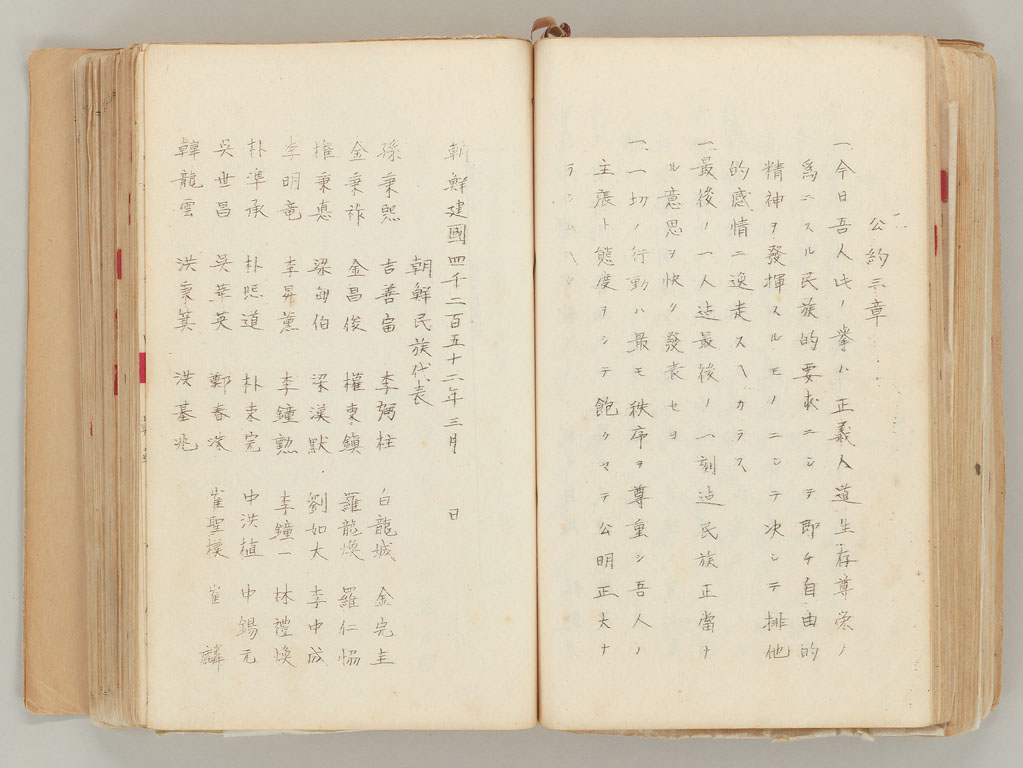 公約三章
一、今日吾人此ノ擧ハ正義人道生存尊榮ノ
爲ニスル民族的要求ニシテ即チ自由的
精神ヲ發揮スルモノニシテ決シテ排他
的感情ニ逸走スヘカラス
一、最後ノ一人迠最後ノ一刻迠民族正當ナ
ル意思ヲ快ク發表セヨ
一、一切ノ行動ハ最モ秩序ヲ尊重シ吾人ノ
主張ト態度ヲシテ飽クマテ公明正大ナ
ラシムヘシ
朝鮮建國四千二百五十二年三月 日
朝鮮民族代表
孫秉熙 吉善宙 李弼柱 白龍城 金完圭
金秉祚 金昌俊 權東鎮 羅龍煥 羅仁協
權秉悳 梁甸伯 梁漢默 劉如大 李甲成
李明竜 李昇薫 李鐘勲 李鐘一 林禮煥
朴準承 朴熙道 朴東完 申洪植 申錫元
吳世昌 吳華英 鄭春洙 崔聖模 崔麟
韓龍雲 洪秉箕 洪基兆